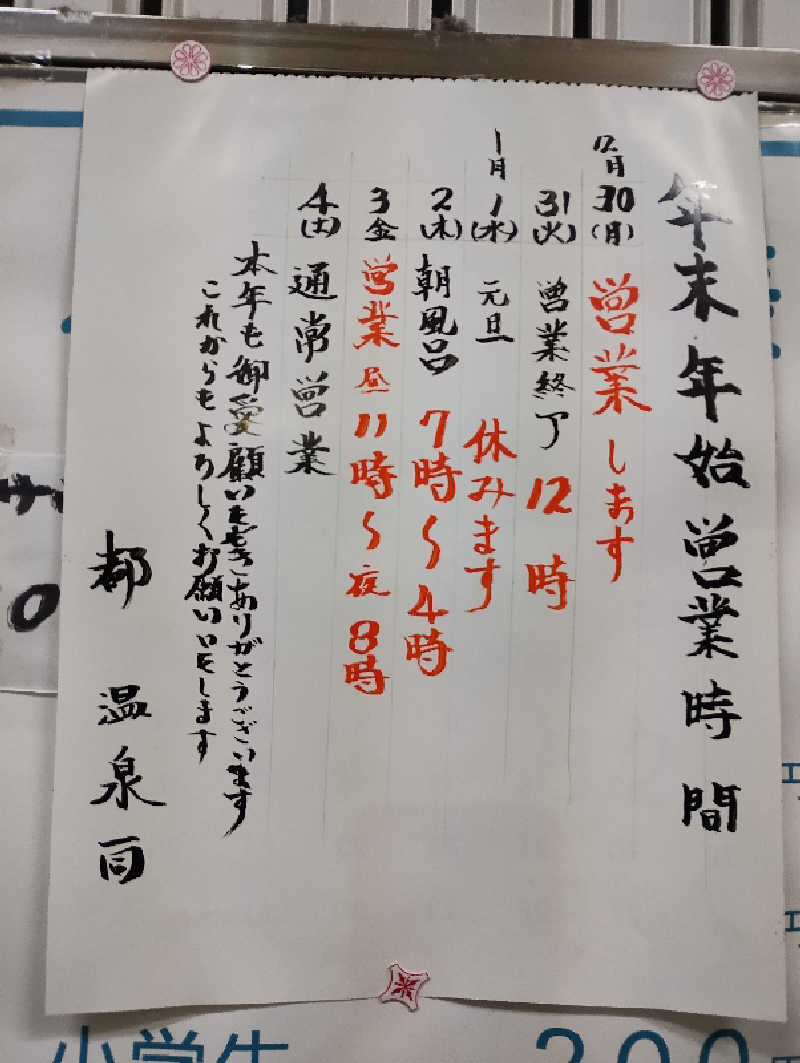 年末年始営業時間
12月
30(月) 営業します
31(火) 営業終了 12時
1月
1(水) 元旦 休みます
2(木) 朝風呂 7時〜4時
3金 営業 昼11時〜夜8時
4(土) 通常営業
本年も御愛顧いただきありがとうございます
これからもよろしくお願いいたします
都温泉一同
小学生 200